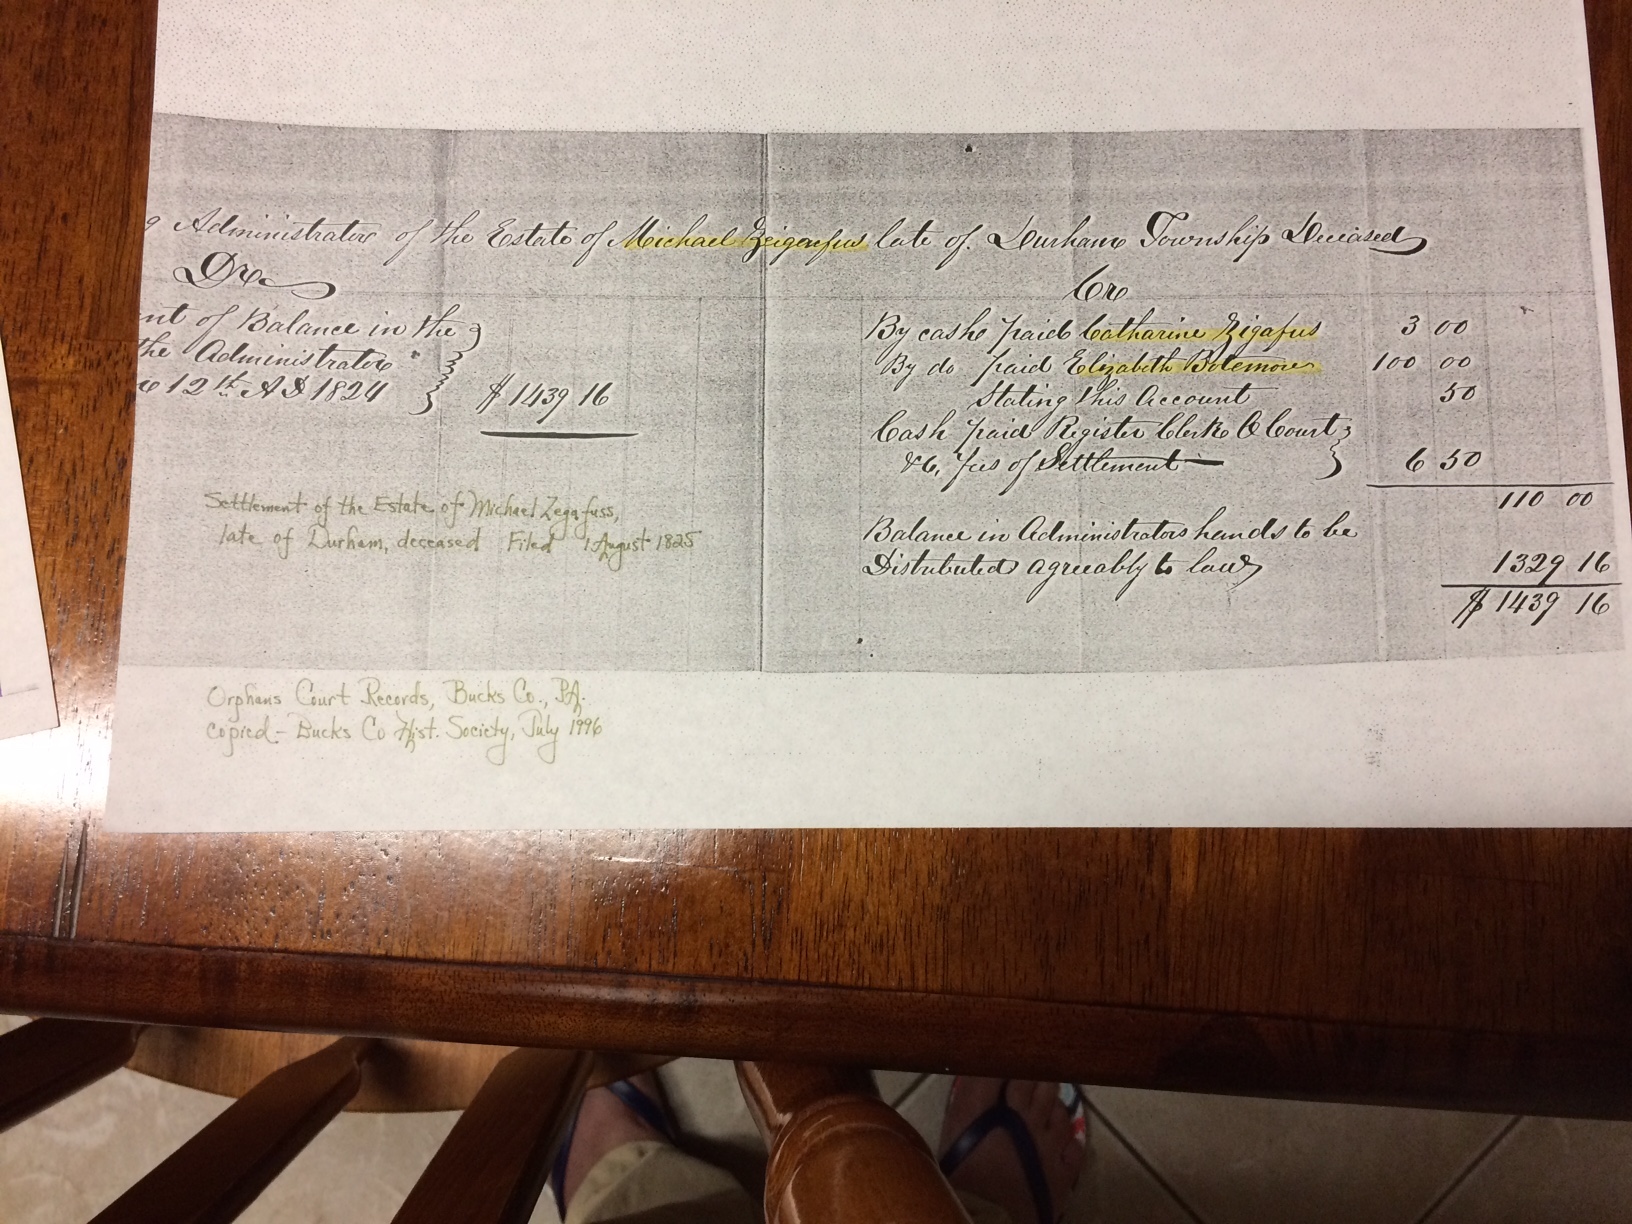 Administrator of the Estate of Michael Zeigenfus late of Durham Township Deceased
Dr
Cr
nt of Balance in the
the Administrator
12th AD 1824
$ 1439 16
By cash paid Catharine Zigafus 3 00
By do paid Elizabeth Botemore 100 00
Stating this Account 50
Cash paid Register Clerk O Court
&c, fees of Settlement 6 50
110 00
Balance in Administrators hands to be
Distributed agreeably to law 1329 16
$ 1439 16
Settlement of the Estate of Michael Zegafuss,
late of Durham, deceased Filed 1 August 1825
Orphans Court Records, Bucks Co., PA.
copied - Bucks Co Hist. Society, July 1996